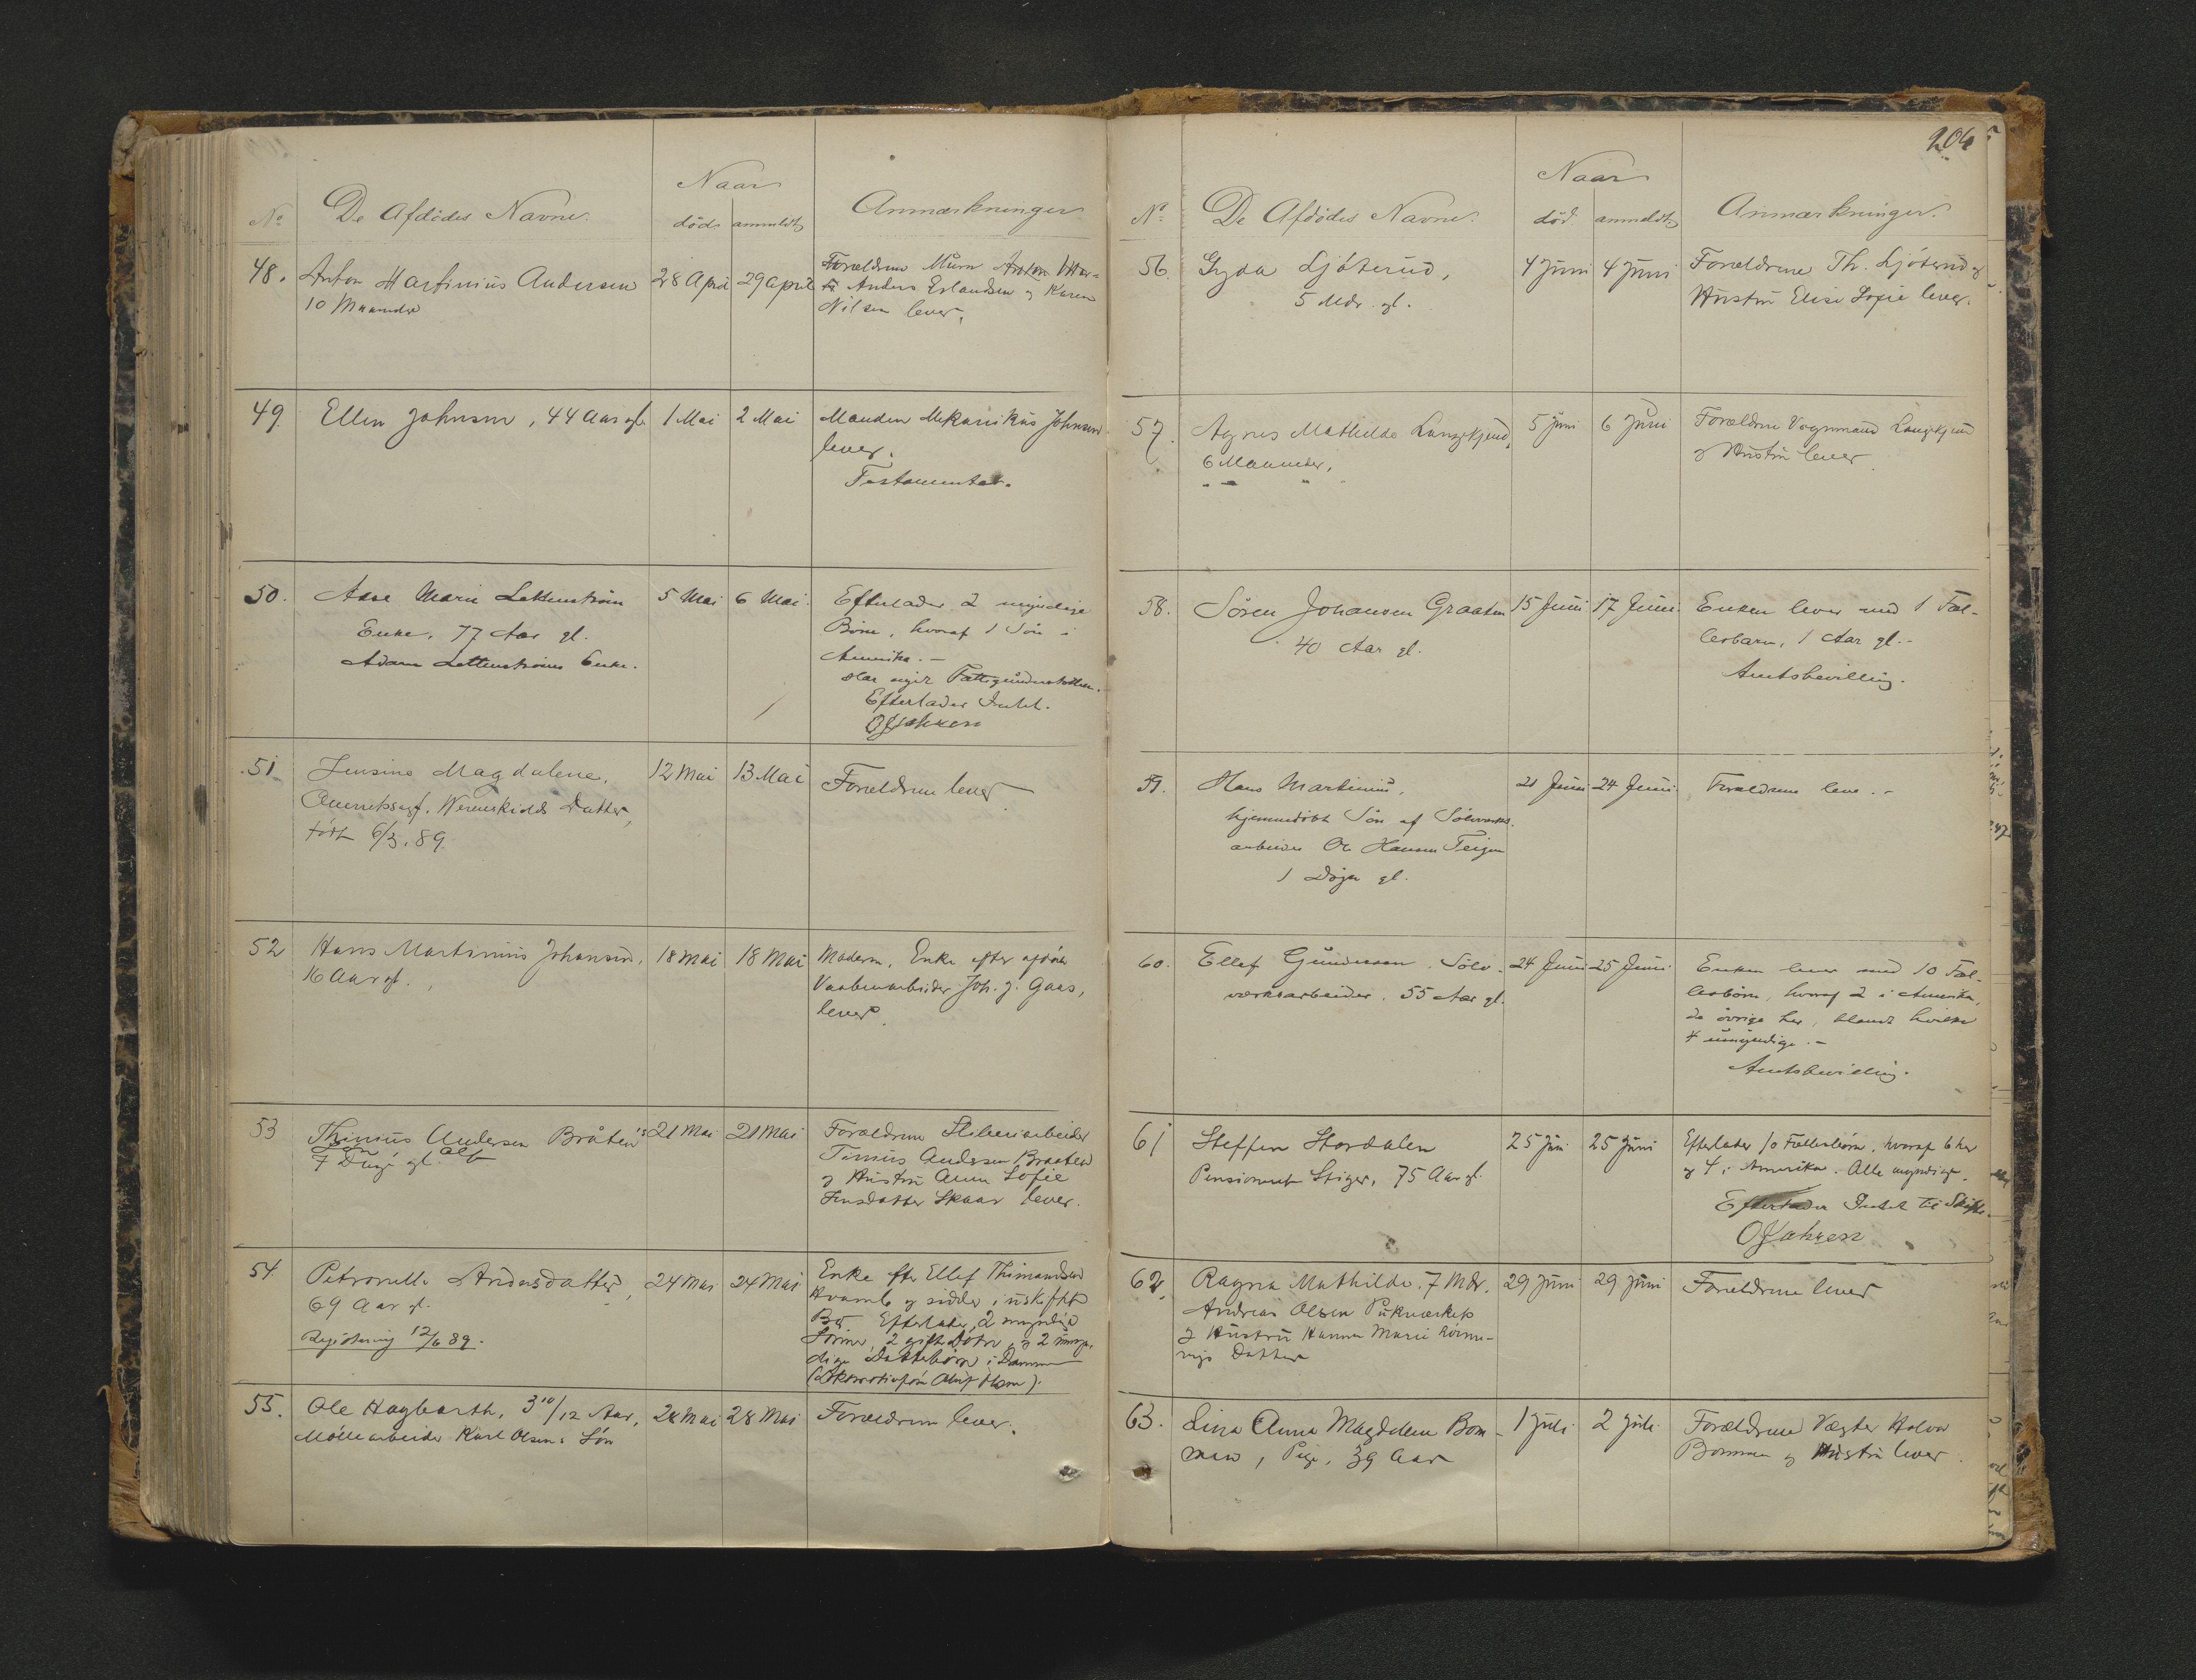 No
De Afdödes Navne.
Naar
död anmeldt
Anmærkninger
48. Anton Martinius Andersen
10 Maaneder
28 April 29 April
Forældrene Murer
Anders Erlandsen og Karen
Nilsen lever.
49. Ellen Johnsen, 44 Aar gl.
1 Mai 2 Mai
Manden Mekanikus Johnsen
lever.
Testamenter.
50. Aase Marie Lettenström
Enke, 77 Aar gl.
Adam Lettenströms Enke.
5 Mai 6 Mai.
Efterlader 2 myndige
Börn, hvoraf 1 Sön i
Amerika. –
Har nydt Fattigunderstöttelse.
Efterlader Intet.
51 Jensine Magdalene,
Werenskiolds Datter,
född 6/3. 89
12 Mai 13 Mai
Forældrene lever
52 Hans Martinius Johansen,
16 Aar gl.
18 Mai 18 Mai
Moderen, Enke efter afdöde
Vaabenarbeider Joh. J. Gaas,
lever.
53 Thinius Andersen Bråten's
Sön
7 Dage gl.
21 Mai 21 Mai
Forældrene Sliberiarbeider
Tinius Andersen Braaten
og Hustru Anna Sofie
Jensdatter Skaar lever.
54. Petronelle Andersdatter,
69 Aar gl.
Registrering 12/6 89.
24 Mai 24 Mai
Enke efter Ellef Thimandsen
Hvamb og sidder i uskiftet
Bo. Efterlader 2 myndige
Sönner, 2 gifte Dötre og 2 umyn-
dige Dattebörn i Drammen
55. Ole Hagbarth, 3 10/12 Aar,
Möllearbeider Karl Olsens Sön
28 Mai 28 Mai
Forældrene lever.
204
No
De Afdödes Navne.
Naar
död anmeldt
Anmærkninger.
56. Gyda Ljöterud,
5 Mdr. gl.
4 Juni 4 Juni
Forældrene Th. Ljöterud og
Hustru Elise Sofie lever.
57. Agnes Mathilde Langekjend,
6 Maaneder,
5 Juni 6 Juni
Forældrene Vognmand Langekjend
og Hustru lever.
58. Sören Johansen Graaten
40 Aar gl.
15 Juni 17 Juni
Enken lever med 1 Fæl-
lesbarn, 1 Aar gl. –
Amtsbevilling.
59. Hans Martinius,
hjemmedöbt Sön af Sölvverks-
arbeider Ole Hansen Teigen
1 Dögn gl.
21 Juni 24 Juni
Forældrene lever. –
60. Ellef Gundersen, Sölv-
værksarbeider, 55 Aar gl.
24 Juni 25 Juni
Enken lever med 10 Fæl-
lesbörn, hvoraf 2 i Amerika,
de övrige her, blandt hvilke
4 umyndige. –
Amtsbevilling.
61 Steffen Stordalen
Pensioneret Stiger, 75 Aar gl.
25 Juni 25 Juni
Efterlader 10 Fællesbörn, hvoraf 6 her
og 4 i Amerika. Alle myndige.
Efterlader Intet til Skifte.
62. Ragna Mathilde, 7 Mdr.
Andreas Olsen Pukverkets
og Hustru Hanna Marie
Datter
29 Juni 29 Juni
Forældrene lever
63. Lina Anna Magdalene Bom-
men, Pige, 39 Aar
1 Juli 2 Juli
Forældrene Vægter Halvor
Bommen og Hustru lever.